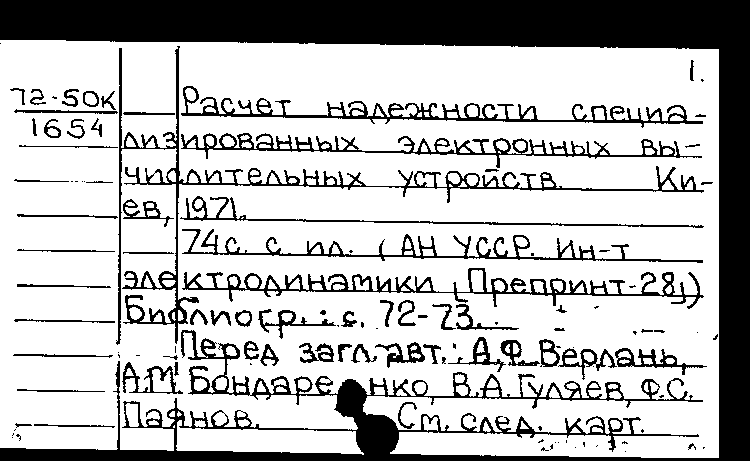 1.
72-50К
1654
Расчет надежности специа-
лизированных электронных вы-
числительных устройств. Ки-
ев, 1971.
74с. с ил. (АН УССР. Ин-т
электродинамики (Препринт-28))
Библиогр.: с. 72-73.
Перед загл. авт.: А.Ф. Верлань,
А.М. Бондаренко, В.А. Гуляев, Ф.С.
Паянов. См. след. карт.